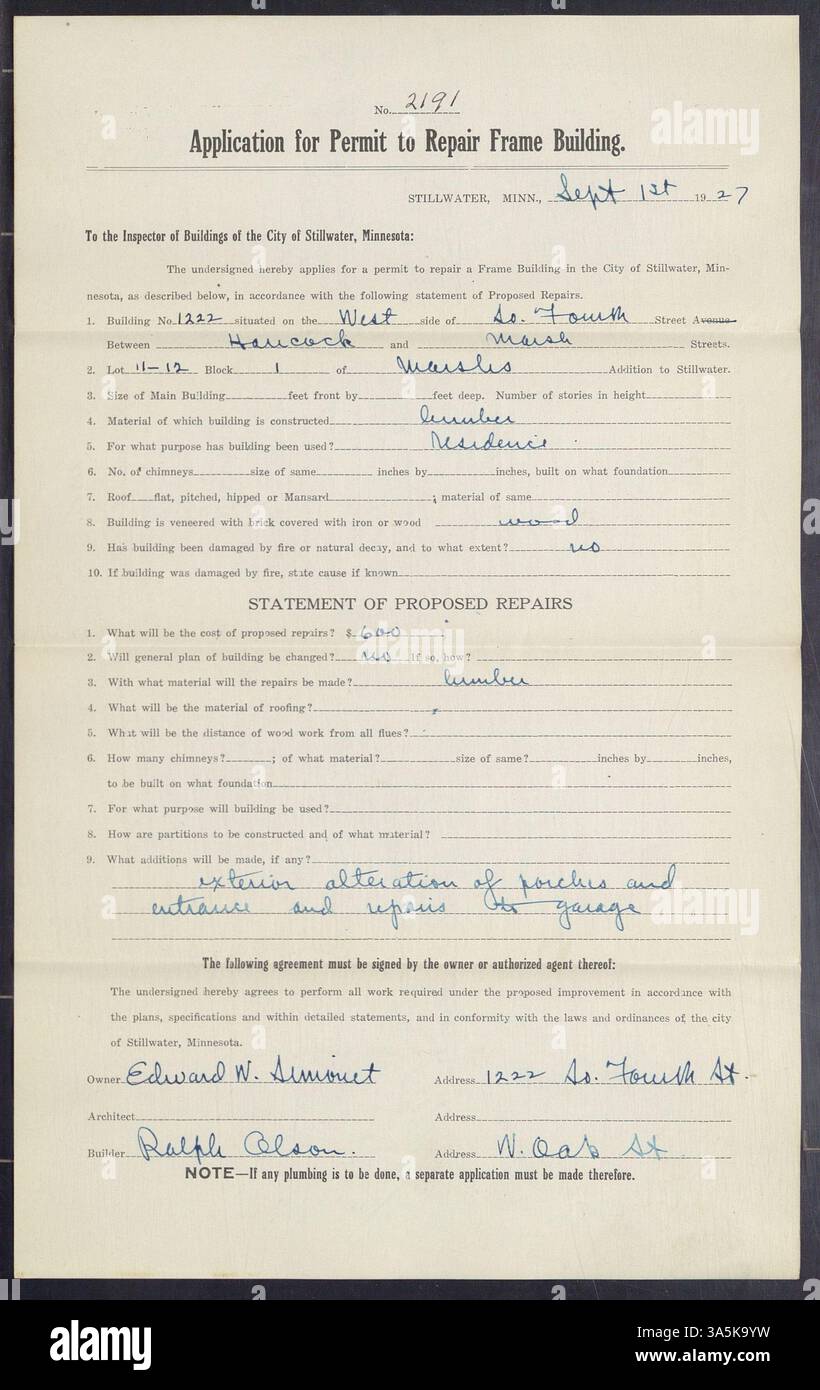 No. 2191
Application for Permit to Repair Frame Building.
STILLWATER, MINN., Sept 1st 1927
To the Inspector of Buildings of the City of Stillwater, Minnesota:
The undersigned hereby applies for a permit to repair a Frame Building in the City of Stillwater, Min-
nesota, as described below, in accordance with the following statement of Proposed Repairs.
1. Building No. 1222 situated on the West side of So. Fourth Street Avenue
Between Hancock and Marsh Streets.
2. Lot 11-12 Block 1 of Marshs Addition to Stillwater.
3. Size of Main Building feet front by feet deep. Number of stories in height
4. Material of which building is constructed lumber
5. For what purpose has building been used? residence
6. No. of chimneys size of same inches by inches, built on what foundation
7. Roof flat, pitched, hipped or Mansard ; material of same
8. Building is veneered with brick covered with iron or wood wood
9. Has building been damaged by fire or natural decay, and to what extent? no
10. If building was damaged by fire, state cause if known
STATEMENT OF PROPOSED REPAIRS
1. What will be the cost of proposed repairs? $ 600
2. Will general plan of building be changed? no If so, how?
3. With what material will the repairs be made? lumber
4. What will be the material of roofing?
5. What will be the distance of wood work from all flues?
6. How many chimneys? ; of what material? size of same? inches by inches,
to be built on what foundation
7. For what purpose will building be used?
8. How are partitions to be constructed and of what material?
9. What additions will be made, if any?
exterior alteration of porches and
entrance and repairs to garage
The following agreement must be signed by the owner or authorized agent thereof:
The undersigned hereby agrees to perform all work required under the proposed improvement in accordance with
the plans, specifications and within detailed statements, and in conformity with the laws and ordinances of the city
of Stillwater, Minnesota.
Owner Edward W. Simonet Address 1222 So. Fourth St.
Architect Address
Builder Ralph Olson. Address W. Oak St
NOTE—If any plumbing is to be done, a separate application must be made therefore.
alamy
Image ID: 3A5K9YW
www.alamy.com